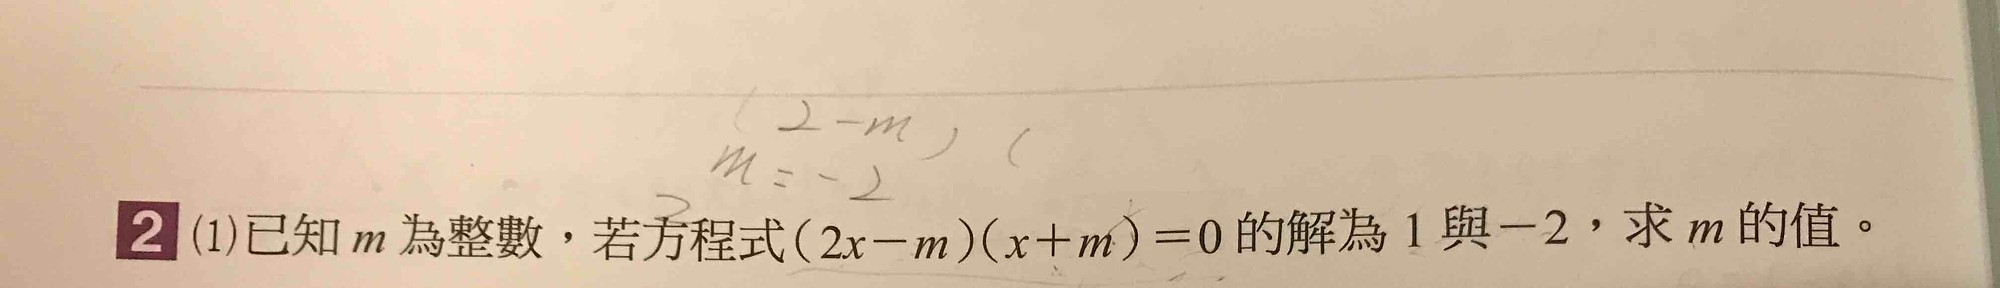 (2-m) (
m=-2
2 (1)已知 m 為整數，若方程式(2x－m)(x＋m)＝0 的解為 1 與－2，求 m 的值。